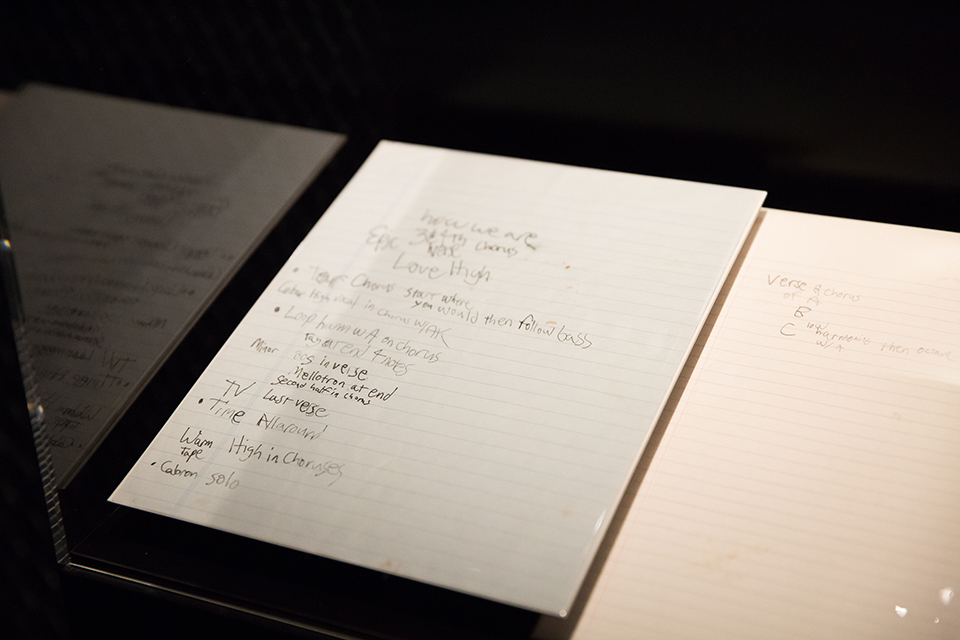 how we are
Epic 3 & 4th
Verse Chorus
Love High
• Tear Chorus start where
you would then follow bass
High in chorus w/AK
• Loop hum w A on chorus
at end 4 notes
Minor in verse
Mellotron at end
second half in chorus
TV Last verse
• Time Allaround
Warm High in Choruses
Tape
• Cabron solo
Verse & chorus
of A
B
C harmonic then octave
w/A